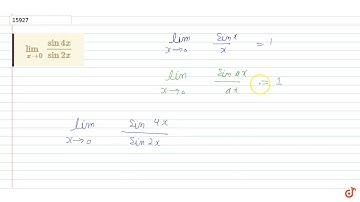 15927
lim x→0 sin 4x / sin 2x
lim x→0 sin x / x = 1
lim x→0 sin ax / ax = 1
lim x→0 sin 4x / sin 2x